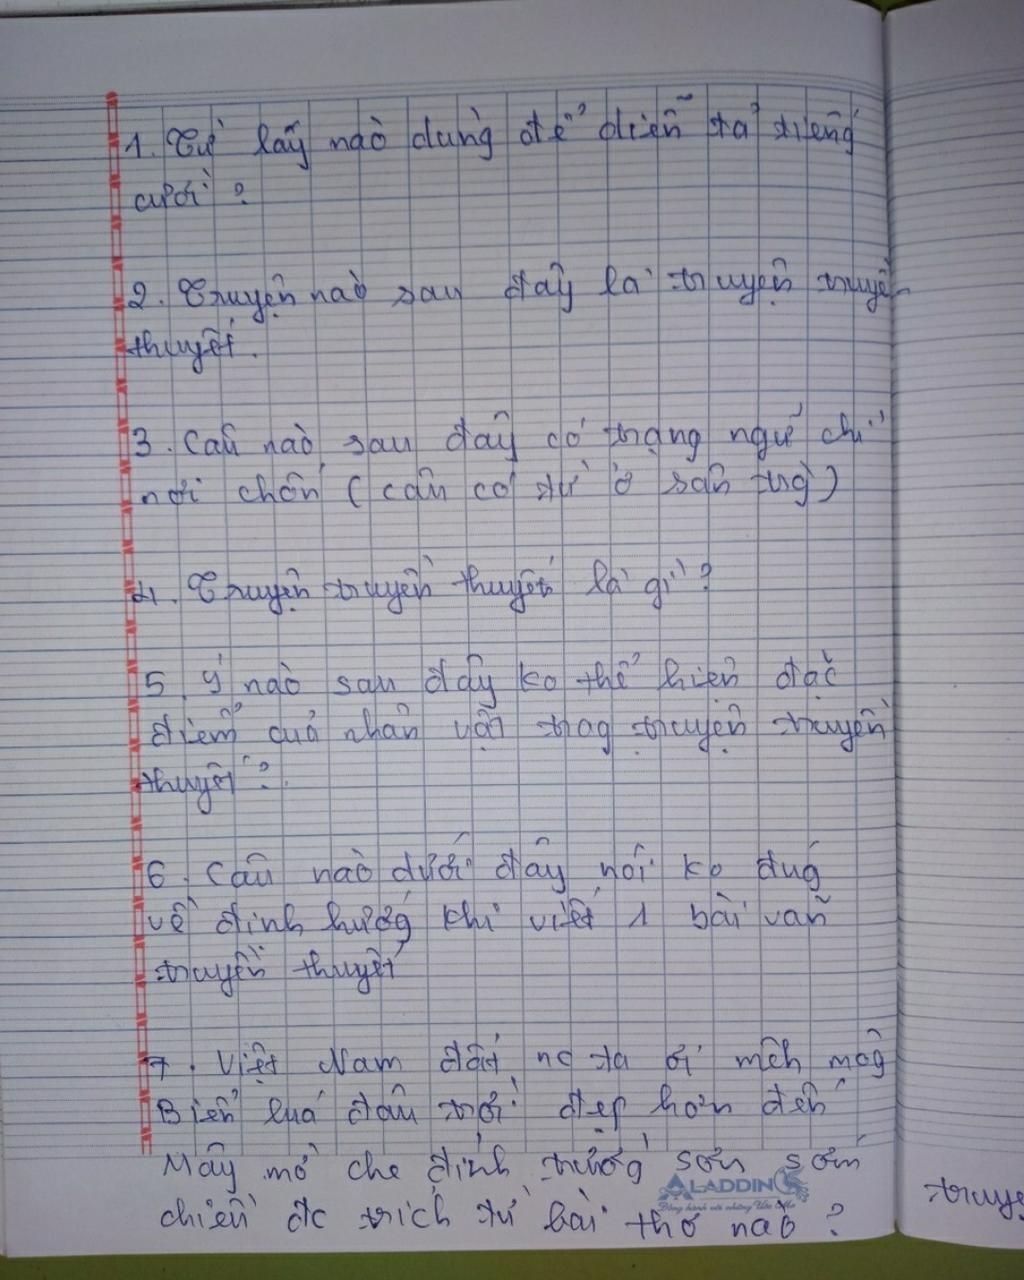 1. Từ láy nào dùng để diễn tả tiếng
cười ?
2. Truyện nào sau đây là truyện truyền
thuyết.
3. Câu nào sau đây có trạng ngữ chỉ
nơi chốn (câu có từ ở sân trg)
4. Truyện truyền thuyết là gì ?
5. Ý nào sau đây ko thể hiện đặc
điểm của nhân vật trog truyện truyền
thuyết ?
6. Câu nào dưới đây nói ko đug
về định hướg khi viết 1 bài văn
truyền thuyết
7. Việt Nam đất nc ta ơi mêh môg
Biển luá đâu trời đẹp hơn đến
Mây mờ che đỉnh trườg sơn sớm
chiều đc trích từ bài thơ nào ?
ALADDIN
Đồng hành với những Ước Mơ
truyệ